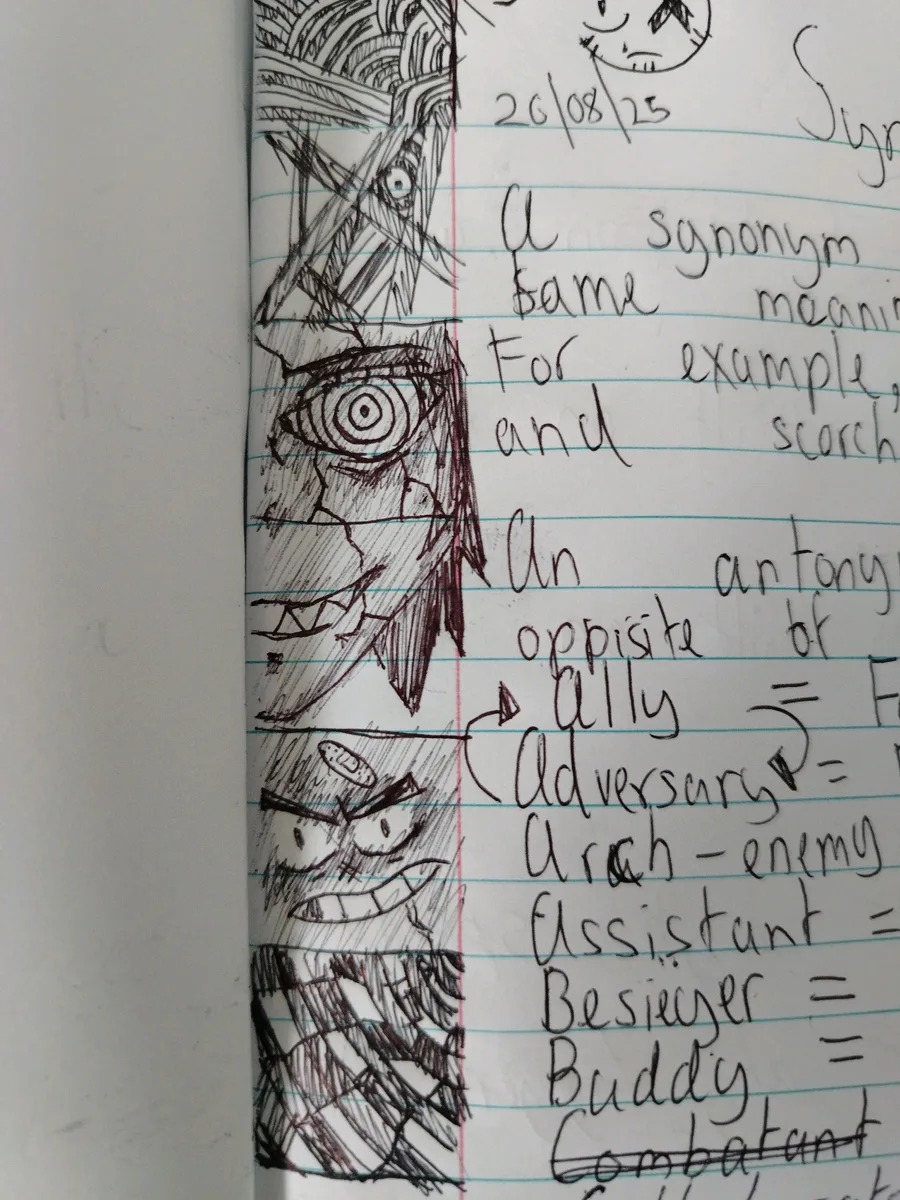 20/08/25
Syn
a synonym
same meanin
For example,
and scorch
An antony
oppisite of
Ally = F
Adversary =
Arch - enemy
Assistant =
Besieger =
Buddy =
Combatant